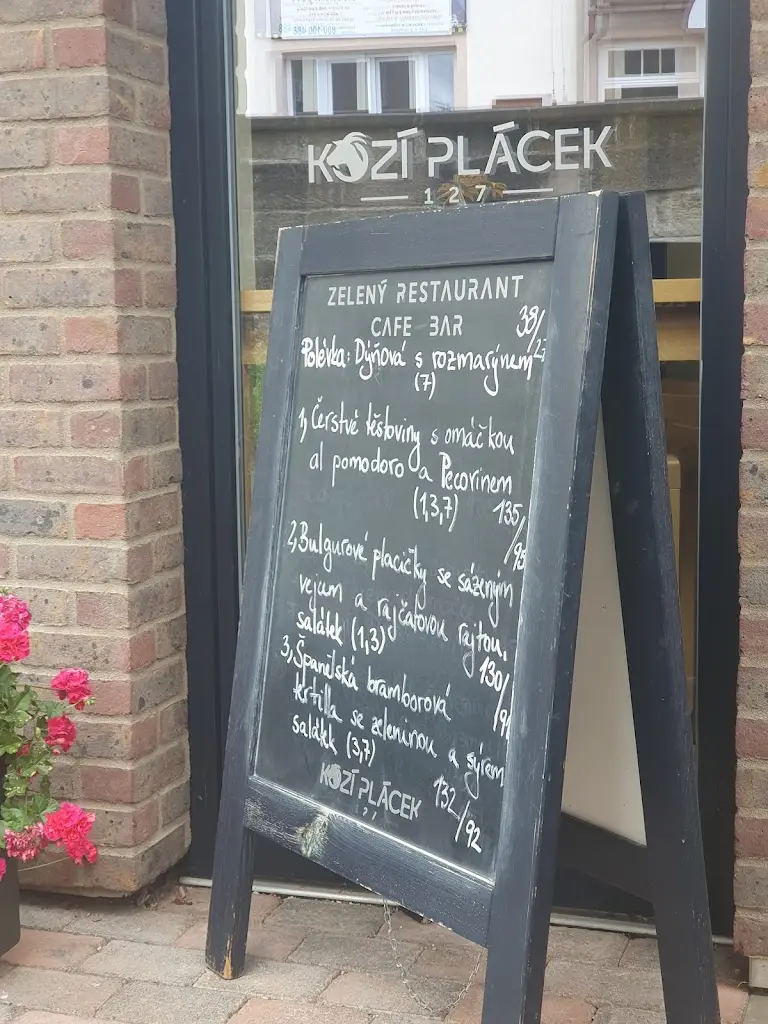 KOZÍ PLÁCEK
127
ZELENÝ RESTAURANT
CAFE BAR
38/
Polévka: Dýňová s rozmarýnem
(7)
1, Čerstvé těstoviny s omáčkou
al pomodoro a Pecorinem
(1,3,7) 135/
2, Bulgurové placičky se sázeným
vejcem a rajčatovou rajtou,
salátek (1,3) 130/
3, Španělská bramborová
tortilla se zeleninou a sýrem
salátek (3,7) 132/92
KOZÍ PLÁCEK